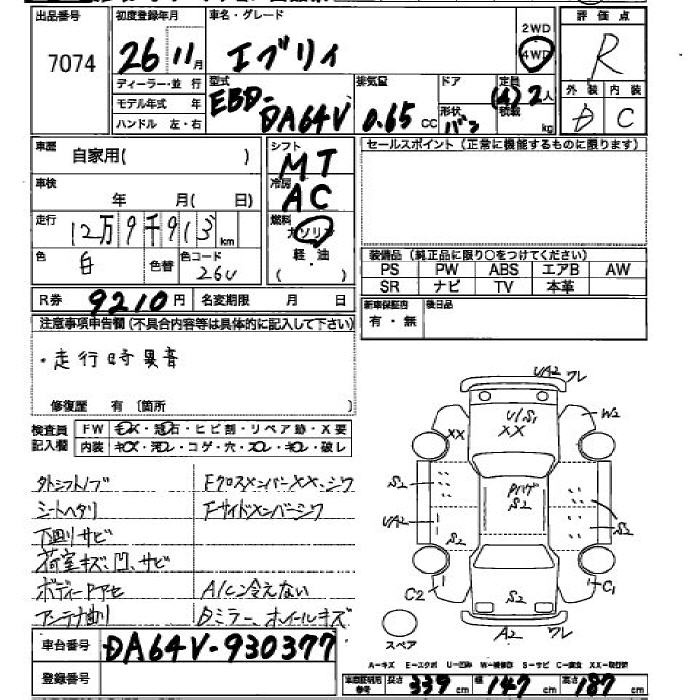 出品番号 7074
初度登録年月 26 11月
車名・グレード エブリィ
2WD
4WD
評価点 R
ディーラー・並行
モデル年式 年
ハンドル 左・右
型式 EBD-DA64V
排気量 0.65 CC
ドア
形状 バン
定員 (4) 2人
積載 kg
外装 内装
D C
車歴 自家用( )
シフト MT
セールスポイント(正常に機能するものに限ります)
車検 年 月( 日)
冷房 AC
走行 12万9千913 km
燃料 ガソリン
軽油
( )
色 白 色替 色コード 26U
装備品(純正品に限り○をつけてください)
PS PW ABS エアB AW
SR ナビ TV 本革
R券 9210円 名変期限 月 日
新車保証書 有・無 後日品
注意事項申告欄(不具合内容等は具体的に記入して下さい)
・走行時異音
修復歴 有〔箇所
検査員記入欄 FW キズ・飛石・ヒビ割・リペア跡・X要
内装・キズ・汚レ・コゲ・穴・ヌレ・キレ・破レ
タトシフトノブ Fクロスメンバーxx、シワ
シートヘタリ Fサイドメンバーシワ
下回りサビ
荷室キズ、凹、サビ
ボディーPアセ A/C冷えない
アンテナ曲り Dミラー、ホイールキズ
UA2 ワレ
U/S1
XX
XX
W2
S2
Pハゲ
S2
S2
UA2
S2
S2
C2
S2
C1
A2 ワレ
スペア
A-キズ E-エクボ U-凹み W-補修跡 S-サビ C-腐食 XX-取替済
車台番号 DA64V-930377
登録番号
車庫証明用参考 長さ 339 cm 幅 147 cm 高さ 187 cm